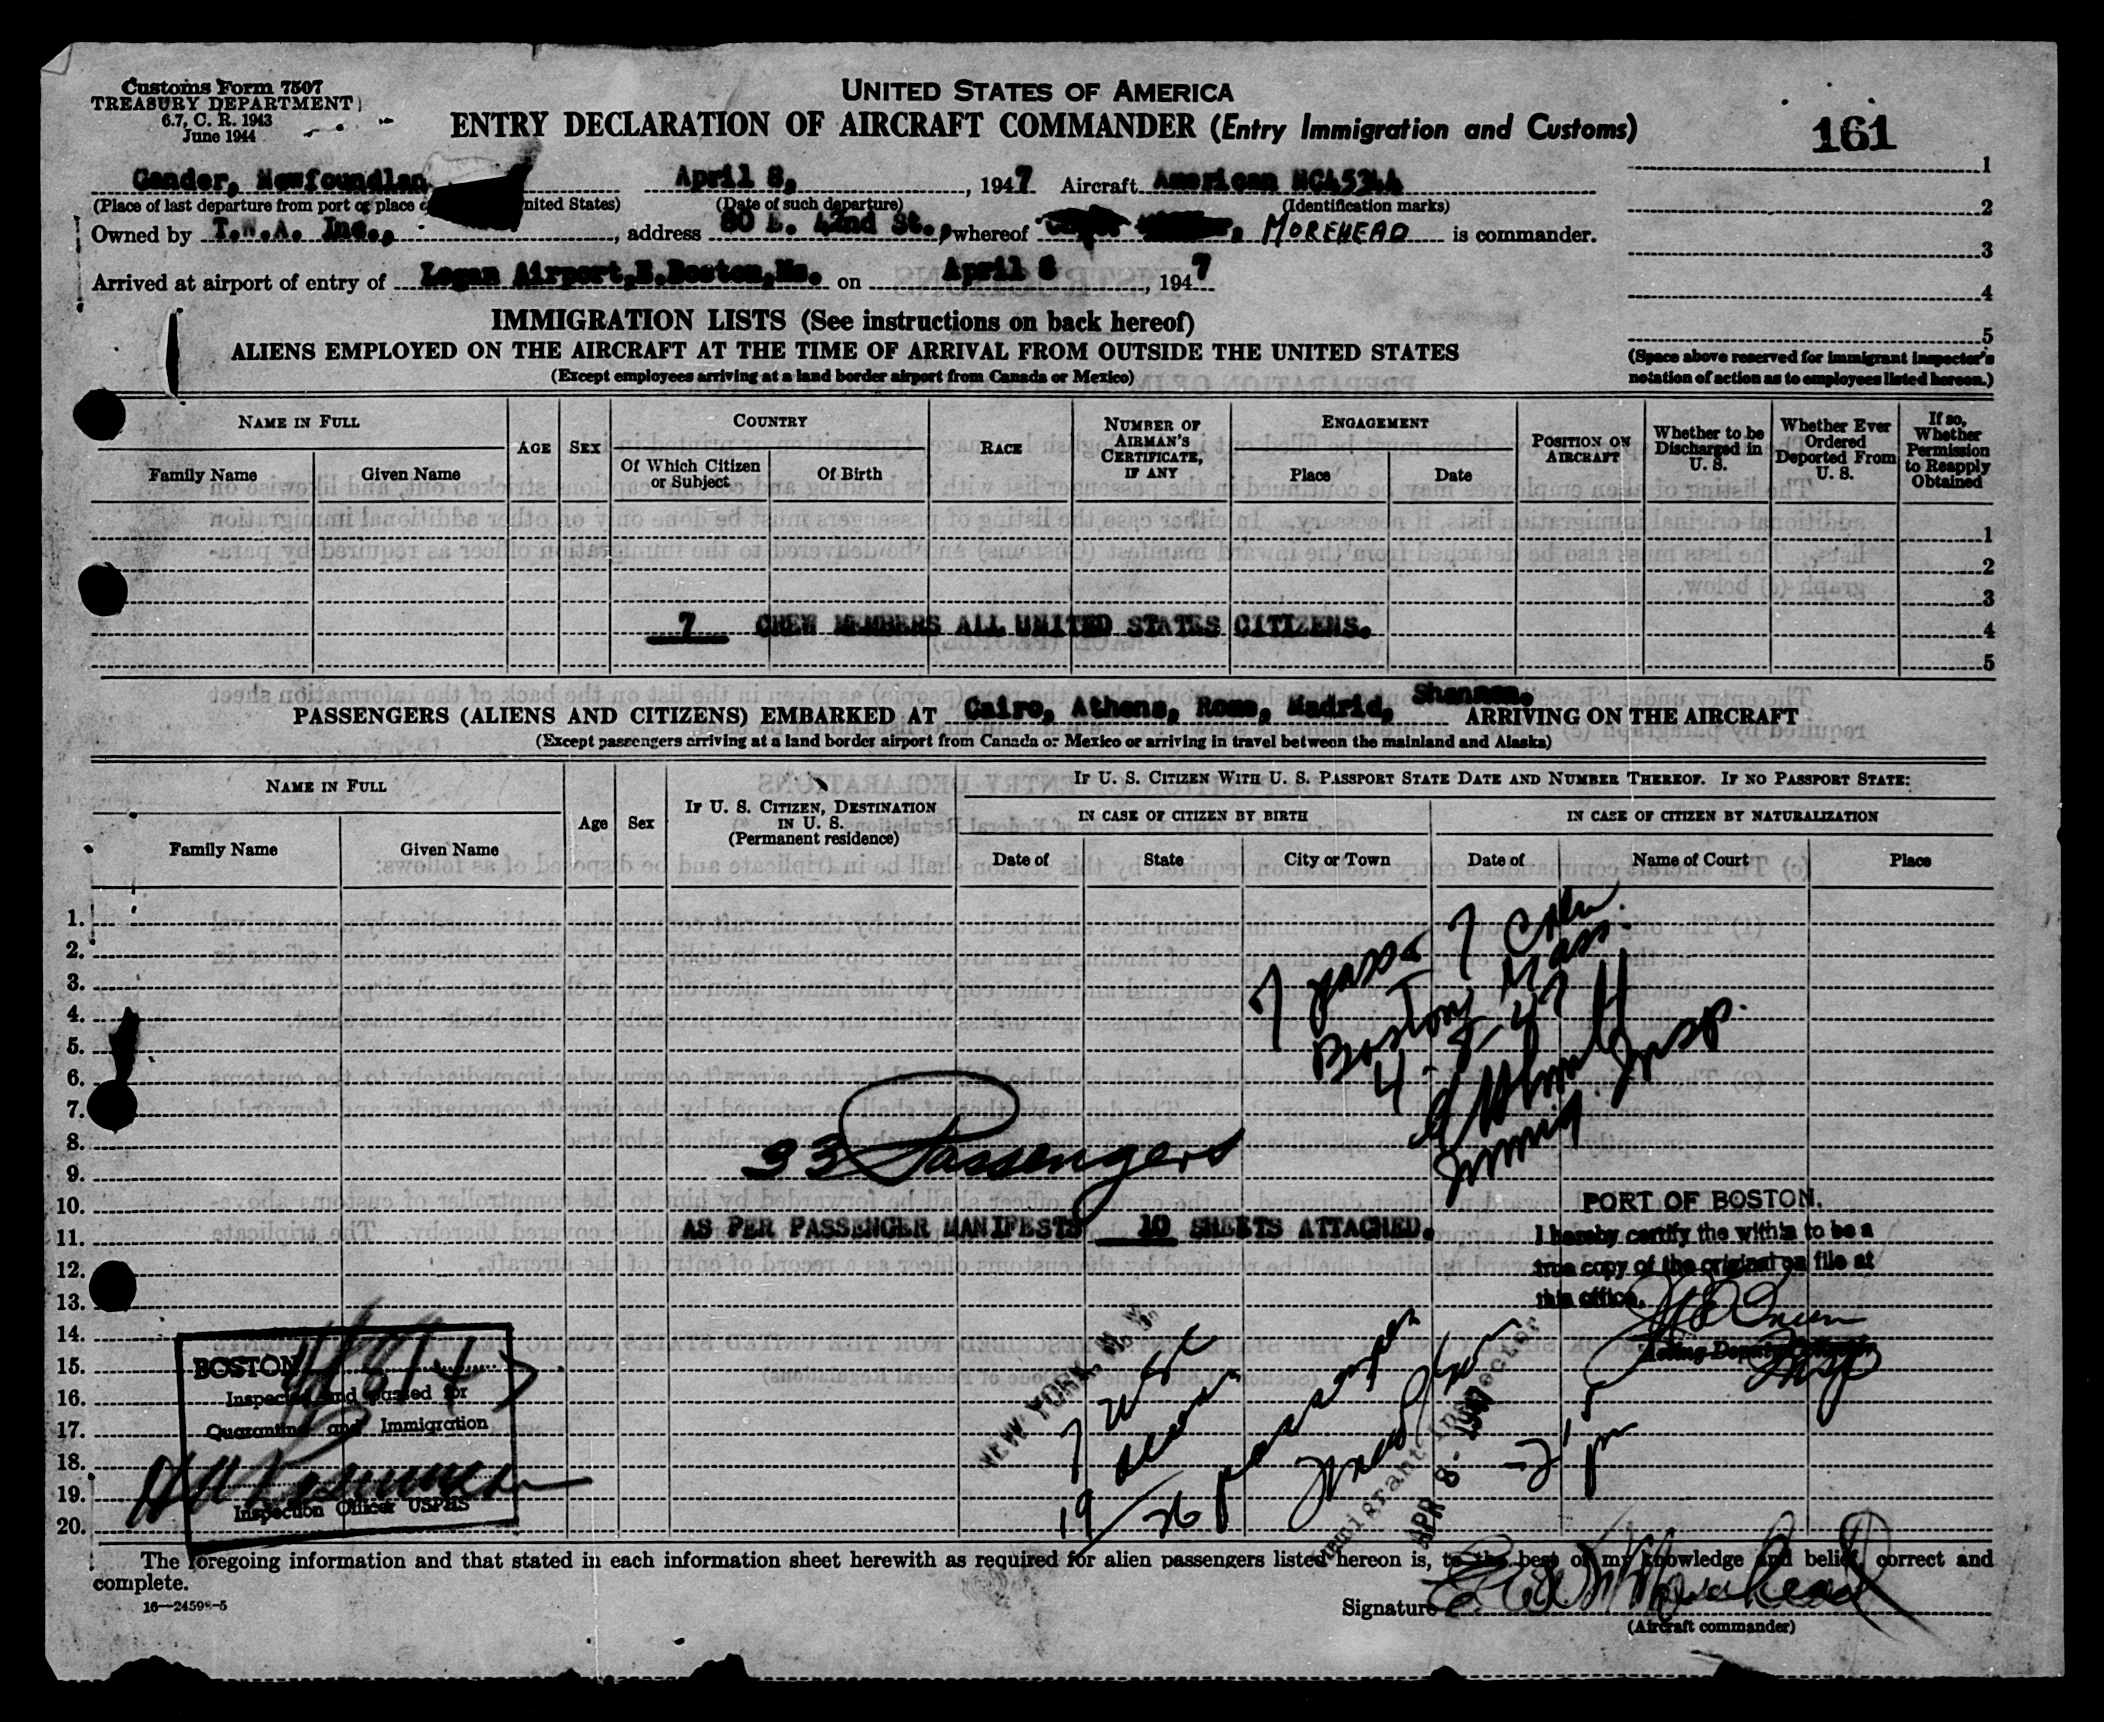 Customs Form 7507
TREASURY DEPARTMENT
6.7, C. R. 1943
June 1944
UNITED STATES OF AMERICA
ENTRY DECLARATION OF AIRCRAFT COMMANDER (Entry Immigration and Customs)
161
Gander, Newfoundlan April 8, 1947 Aircraft American NC45344
(Place of last departure from port or place nited States) (Date of such departure) (Identification marks)
Owned by T.W.A. Inc., address 80 E. 42nd St., whereof MOREHEAD is commander.
Arrived at airport of entry of Logan Airport,E.Boston,Ms. on April 8, 1947
1
2
3
4
5
(Space above reserved for immigrant inspector's
notation of action as to employees listed hereon.)
IMMIGRATION LISTS (See instructions on back hereof)
ALIENS EMPLOYED ON THE AIRCRAFT AT THE TIME OF ARRIVAL FROM OUTSIDE THE UNITED STATES
(Except employees arriving at a land border airport from Canada or Mexico)
NAME IN FULL
Family Name Given Name
AGE
SEX
COUNTRY
Of Which Citizen or Subject Of Birth
RACE
NUMBER OF AIRMAN'S CERTIFICATE, IF ANY
ENGAGEMENT
Place Date
POSITION ON AIRCRAFT
Whether to be Discharged in U. S.
Whether Ever Ordered Deported From U. S.
If so, Whether Permission to Reapply Obtained
1
2
3
4
5
7 CREW MEMBERS ALL UNITED STATES CITIZENS.
PASSENGERS (ALIENS AND CITIZENS) EMBARKED AT Cairo, Athens, Rome, Madrid, Shannon. ARRIVING ON THE AIRCRAFT
(Except passengers arriving at a land border airport from Canada or Mexico or arriving in travel between the mainland and Alaska)
NAME IN FULL
Family Name Given Name
Age
Sex
IF U. S. CITIZEN, DESTINATION IN U. S.
(Permanent residence)
IF U. S. CITIZEN WITH U. S. PASSPORT STATE DATE AND NUMBER THEREOF. IF NO PASSPORT STATE:
IN CASE OF CITIZEN BY BIRTH IN CASE OF CITIZEN BY NATURALIZATION
Date of State City or Town Date of Name of Court Place
1.
2.
3.
4.
5.
6.
7.
8.
9.
10.
11.
12.
13.
14.
15.
16.
17.
18.
19.
20.
7 pass 7 Crew
Boston, Mass.
4-8-47
Immig. Insp.
33 Passengers
AS PER PASSENGER MANIFESTS 10 SHEETS ATTACHED.
PORT OF BOSTON.
I hereby certify the within to be a
true copy of the original on file at
this office.
Insp
BOSTON 4/8/47
Inspected and passed for
Quarantine and Immigration
Inspection Officer USPHS
NEW YORK, N. Y.
7 USC
19 26 passengers
Immigrant Inspector
APR 8 - 1947
The foregoing information and that stated in each information sheet herewith as required for alien passengers listed hereon is, to the best of my knowledge and belief, correct and
complete.
16—24598-5
Signature Morehead
(Aircraft commander)